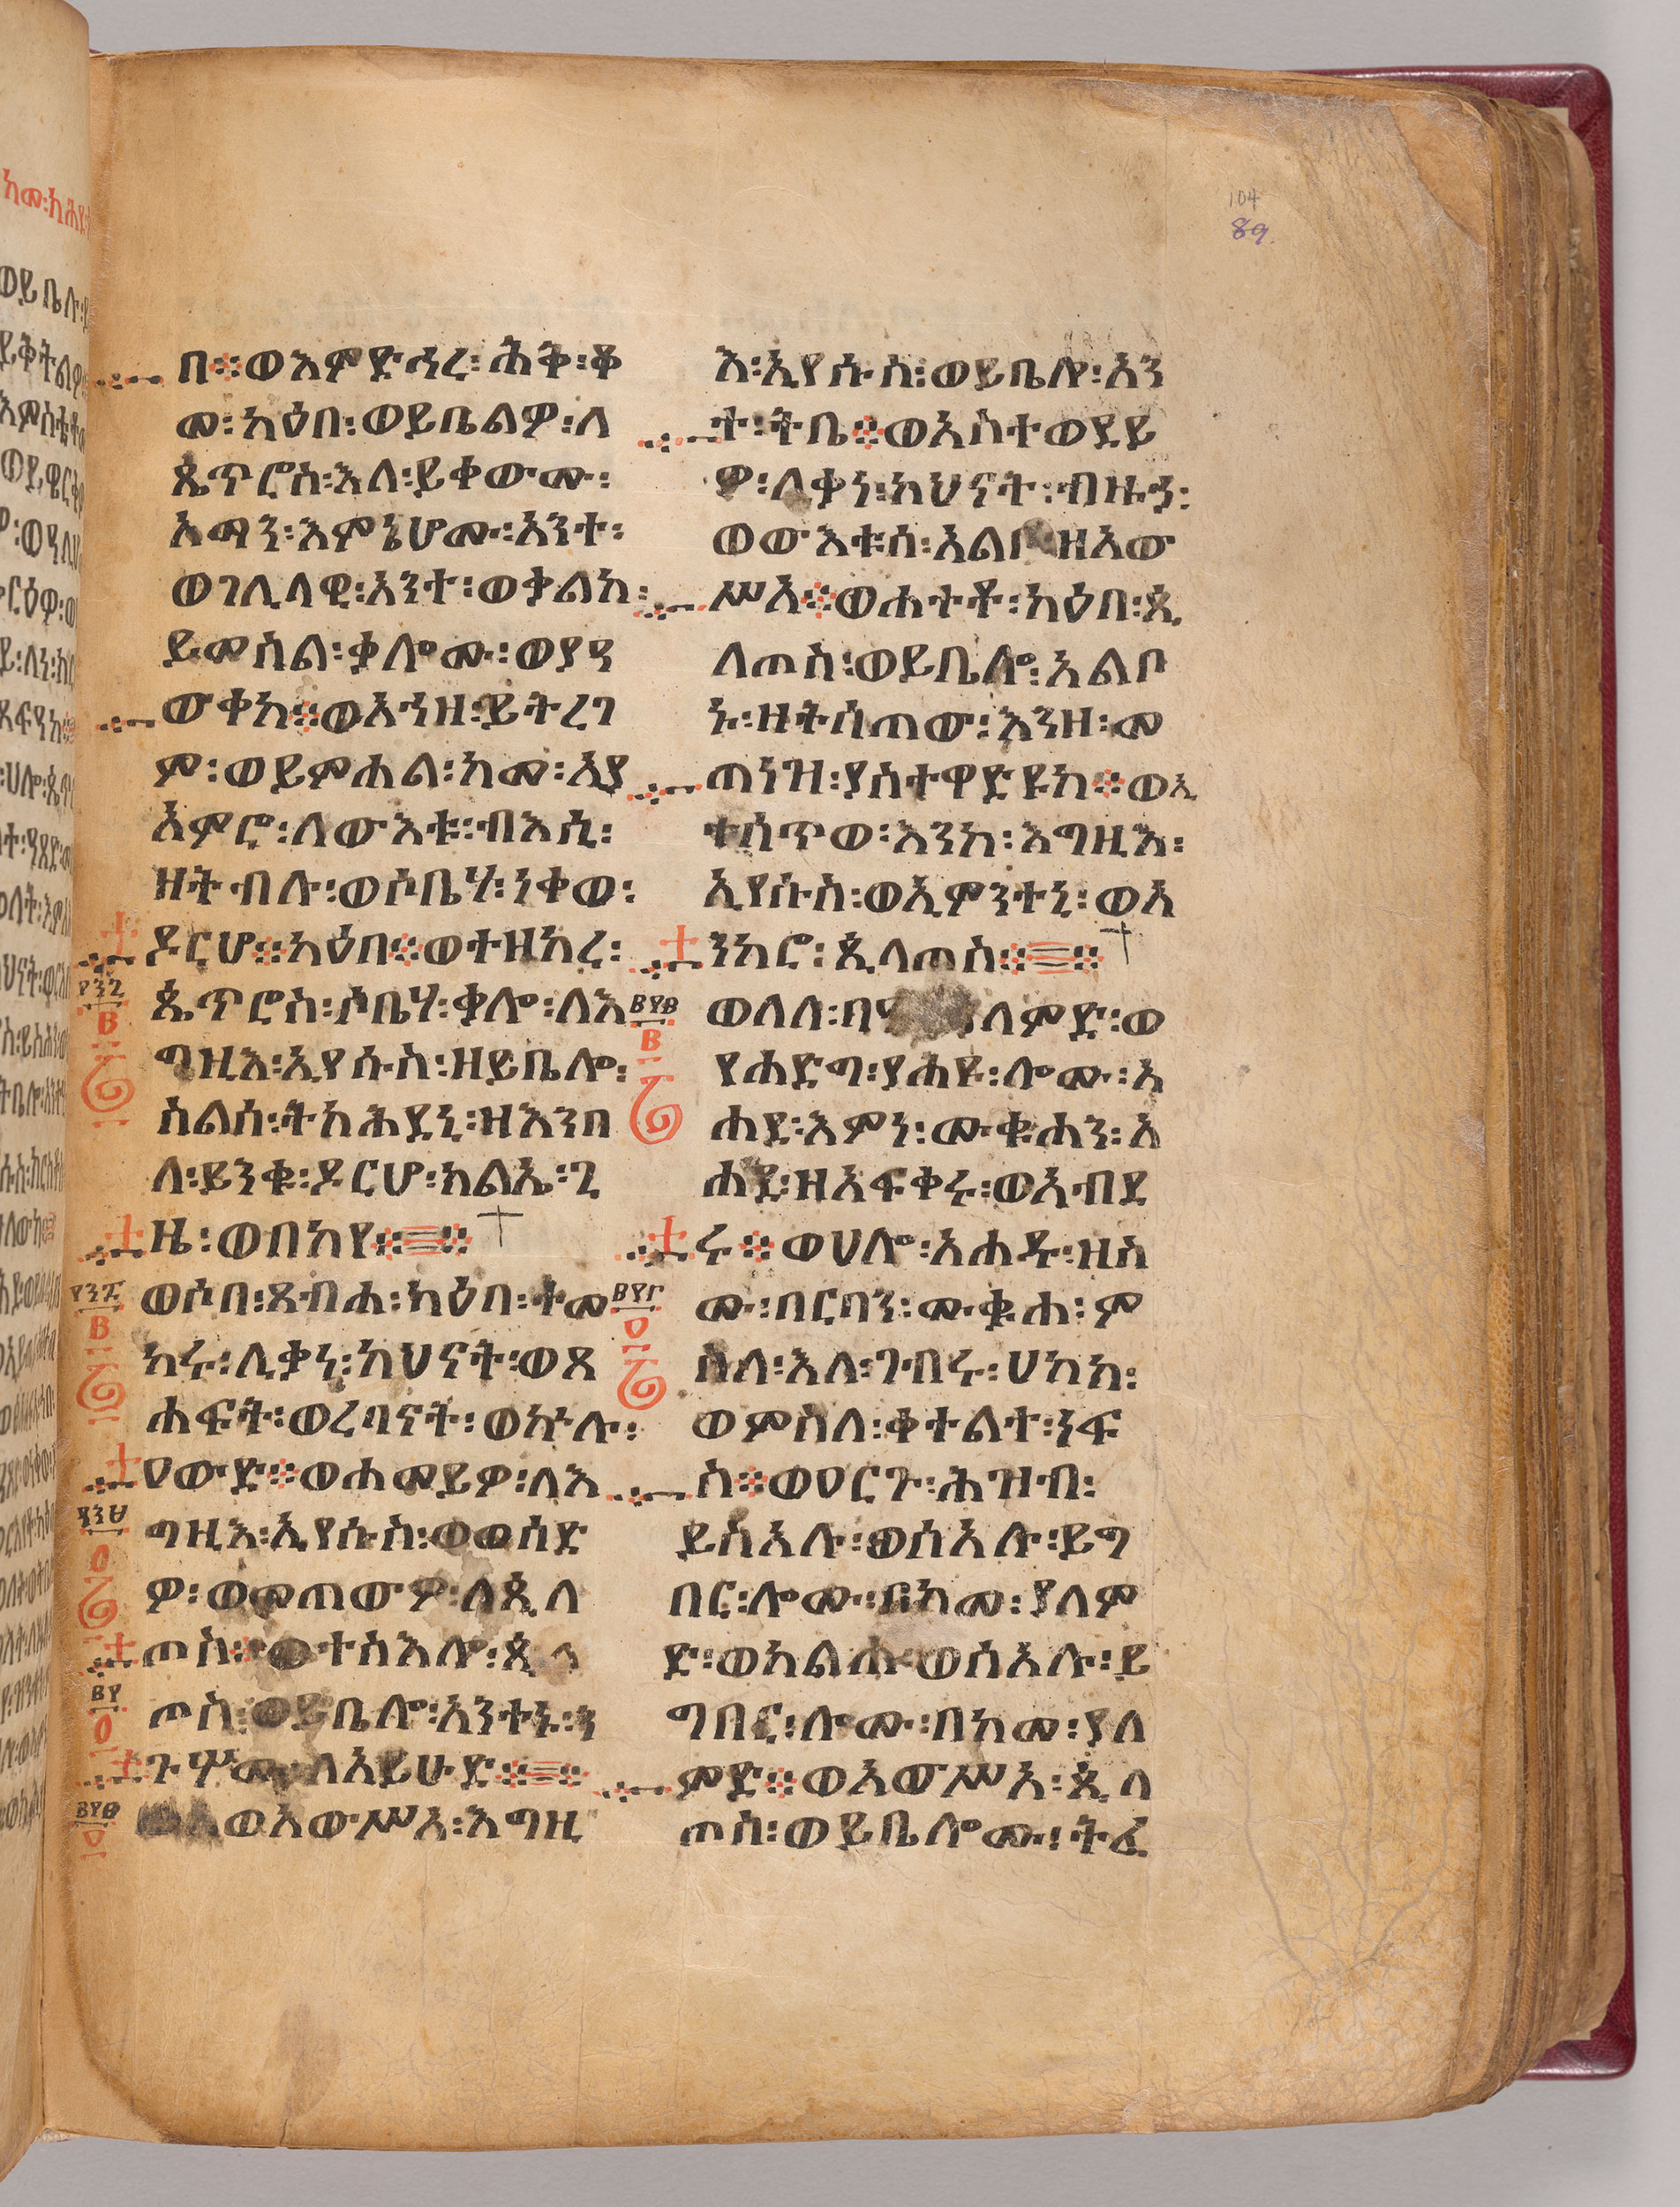 104
89.
በ፨ወእምድኅረ፡ሕቅ፡ቆ
መ፡ካዕበ፡ወይቤልዎ፡ለ
ጴጥሮስ፡እለ፡ይቀውሙ፡
አማን፡እምኔሆሙ፡አንተ፡
ወገሊላዊ፡አንተ፡ወቃልከ፡
ይመስል፡ቃሎሙ፡ወያዓ
ውቀከ፨ወአኀዘ፡ይትረገ
ም፡ወይምሐል፡ከመ፡ኢያ
አምሮ፡ለውእቱ፡ብእሲ፡
ዘትብሉ፡ወሶቤሃ፡ነቀወ፡
ዶርሆ፨ካዕበ፨ወተዘከረ፡
ጴጥሮስ፡ሶቤሃ፡ቃሎ፡ለእ
ግዚእ፡ኢየሱስ፡ዘይቤሎ፡
ስልሰ፡ትክሕደኒ፡ዘእንበ
ለ፡ይንቁ፡ዶርሆ፡ክልኤ፡ጊ
ዜ፡ወበከየ፨
ወሶበ፡ጸብሐ፡ካዕበ፡ተመ
ከሩ፡ሊቃነ፡ካህናት፡ወጸ
ሐፍት፡ወረባናት፡ወኵሉ፡
ዐውድ፨ወሐመይዎ፡ለእ
ግዚእ፡ኢየሱስ፡ወወሰድ
ዎ፡ወመጠውዎ፡ለጲላ
ጦስ፨ወተስእሎ፡ጲላ
ጦስ፡ወይቤሎ፡አንተኑ፡ን
ጉሦሙ፡ለአይሁድ፨
ወአውሥአ፡እግዚ
እ፡ኢየሱስ፡ወይቤሎ፡አን
ተ፡ትቤ፨ወአስተወደይ
ዎ፡ሊቃነ፡ካህናት፡ብዙኃ፡
ወውእቱሰ፡አልቦ፡ዘአው
ሥአ፨ወሐተቶ፡ካዕበ፡ጲ
ላጦስ፡ወይቤሎ፡አልቦ
ኑ፡ዘትሰጠው፡እንዘ፡መ
ጠነዝ፡ያስተዋድዩከ፨ወኢ
ተሰጥወ፡እንከ፡እግዚእ፡
ኢየሱስ፡ወኢምንተኒ፡ወአ
ንከሮ፡ጲላጦስ፨
ወለለ፡በዓለ፡ለምድ፡ወ
የሐድግ፡ያሐዩ፡ሎሙ፡አ
ሐደ፡እምነ፡ሙቁሐን፡አ
ሐደ፡ዘአፍቀሩ፡ወአብደ
ሩ፨ወሀሎ፡አሐዱ፡ዘስ
ሙ፡በርባን፡ሙቁሐ፡ም
ስለ፡እለ፡ገብሩ፡ሀከከ፡
ወምስለ፡ቀተልተ፡ነፍ
ስ፨ወዐርጉ፡ሕዝብ፡
ይስአሉ፡ወሰአሉ፡ይግ
በር፡ሎሙ፡በከመ፡ያለም
ድ፡ወከልሑ፡ወሰአሉ፡ይ
ግበር፡ሎሙ፡በከመ፡ያለ
ምድ፨ወአውሥአ፡ጲላ
ጦስ፡ወይቤሎሙ፡ትፈ